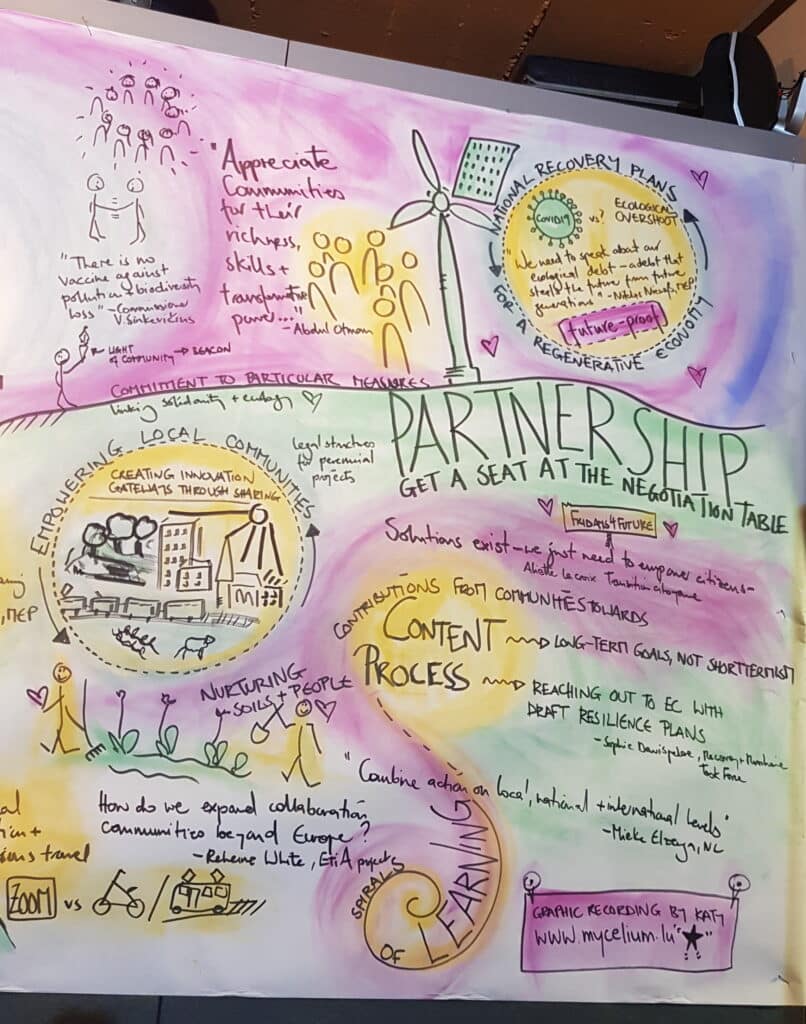 "Appreciate
Communities
for their
richness,
skills +
transformative
power..."
- Abdul Otman
"There is no
vaccine against
pollution + biodiversity
loss" - Commissioner
V. Sinkevičius
LIGHT
OF COMMUNITY → BEACON
COMMITMENT TO PARTICULAR MEASURES
linking solidarity + ecology
NATIONAL RECOVERY PLANS
COVID19
vs?
ECOLOGICAL
OVERSHOOT
"We need to speak about our
ecological debt - a debt that
steals the future from future
generations" -
MEP
future-proof
FOR A REGENERATIVE ECONOMY
PARTNERSHIP
GET A SEAT AT THE NEGOTIATION TABLE
EMPOWERING LOCAL COMMUNITIES
CREATING INNOVATION
GATEWAYS THROUGH SHARING
legal structures
for perennial
projects
FRIDAYS4FUTURE
Solutions exist - we just need to empower citizens -
CONTRIBUTIONS FROM COMMUNITIES TOWARDS
CONTENT
LONG-TERM GOALS, NOT SHORTTERMISM
PROCESS
REACHING OUT TO EC WITH
DRAFT RESILIENCE PLANS
- Sophie
Task Force
MEP
NURTURING
SOILS + PEOPLE
"Combine action on local, national + international levels"
- Mieke
How do we expand collaboration
communities beyond Europe?
White,
projects
travel
ZOOM vs
SPIRALS
OF LEARNING
GRAPHIC RECORDING BY KATY
www.mycelium.lu